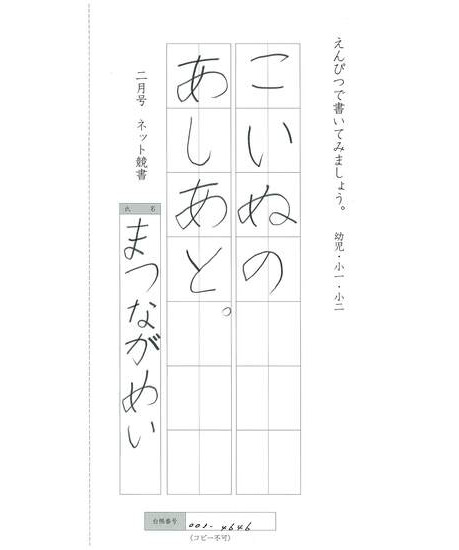 えんぴつで書いてみましょう。　幼児・小一・小二
こいぬの
あしあと。
二月号　ネット競書
氏名
まつながめい
台帳番号　001-4646
(コピー不可)